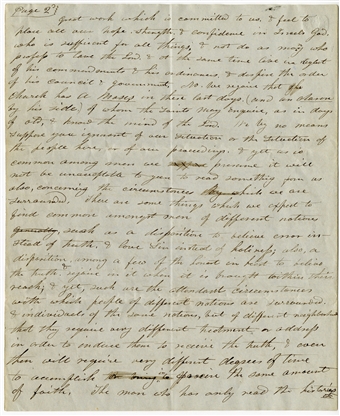 Page 2d
great work which is committed to us. & feel to
place all our hope, strength, & confidence in Israels God,
who is sufficient for all things, & not do as many who
profess to love the Lord, & at the same time live in neglect
of his commandments & his ordinances, & despise the order
of his Council & government. No. We rejoice that the
Church has its Moses in these last days, (and an Aaron
by his side) of whom the Saints may enquire, as in days
of old, & know the mind of the Lord. I by no means
suppose you ignorant of our situation or the situation of
the people here, or of our proceedings, & yet as is
common among men are presume it will
not be unacceptable to you to read something from us
also, concerning the circumstances which we are
surround. There are some things which we expect to
find common amongst men of different nations
such as a disposition to believe error in-
stead of truth, & love Sin instead of holiness; also, a
disposition, among a few of the honest in heart to believe
the truth, & rejoice in it when it is brought within their
reach; & yet, such are the attendant circumstances
with which people of different nations are surrounded
& individuals of the same nations, but of different neighborhoods
that they require very different treatment, or address
in order to induce them to receive the truth, & even
then will require very different degrees of time
to accomplish the same amount
of faith. The man who has only read the histories